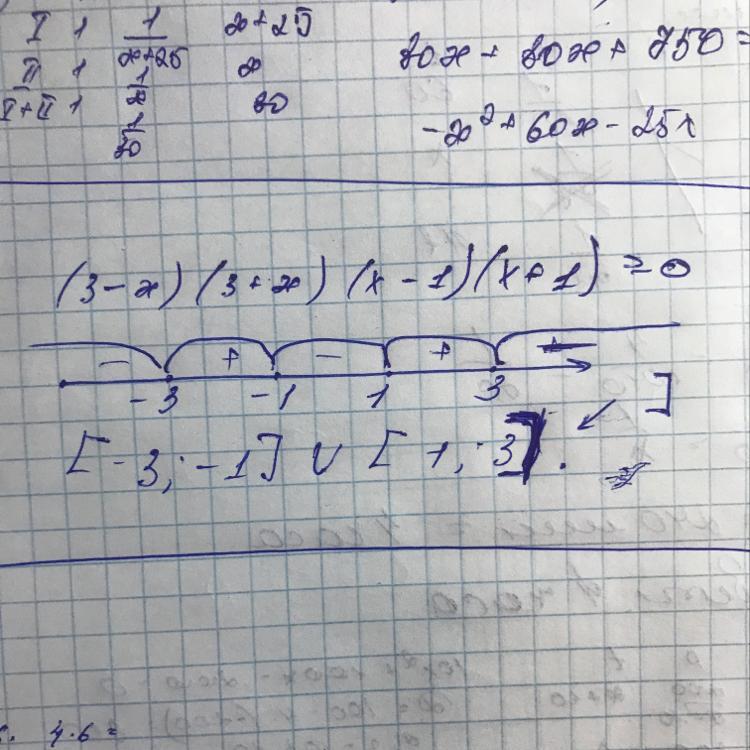 I 1 1/x+25 x+25
II 1 1/x x
I+II 1 1/30 30
30x + 30x + 750 =
-x² + 60x - 25x
(3-x)(3+x)(x-1)(x+1) ≥ 0
- + - + -
-3 -1 1 3
[-3; -1] ∪ [1; 3]. ]
4.6 =